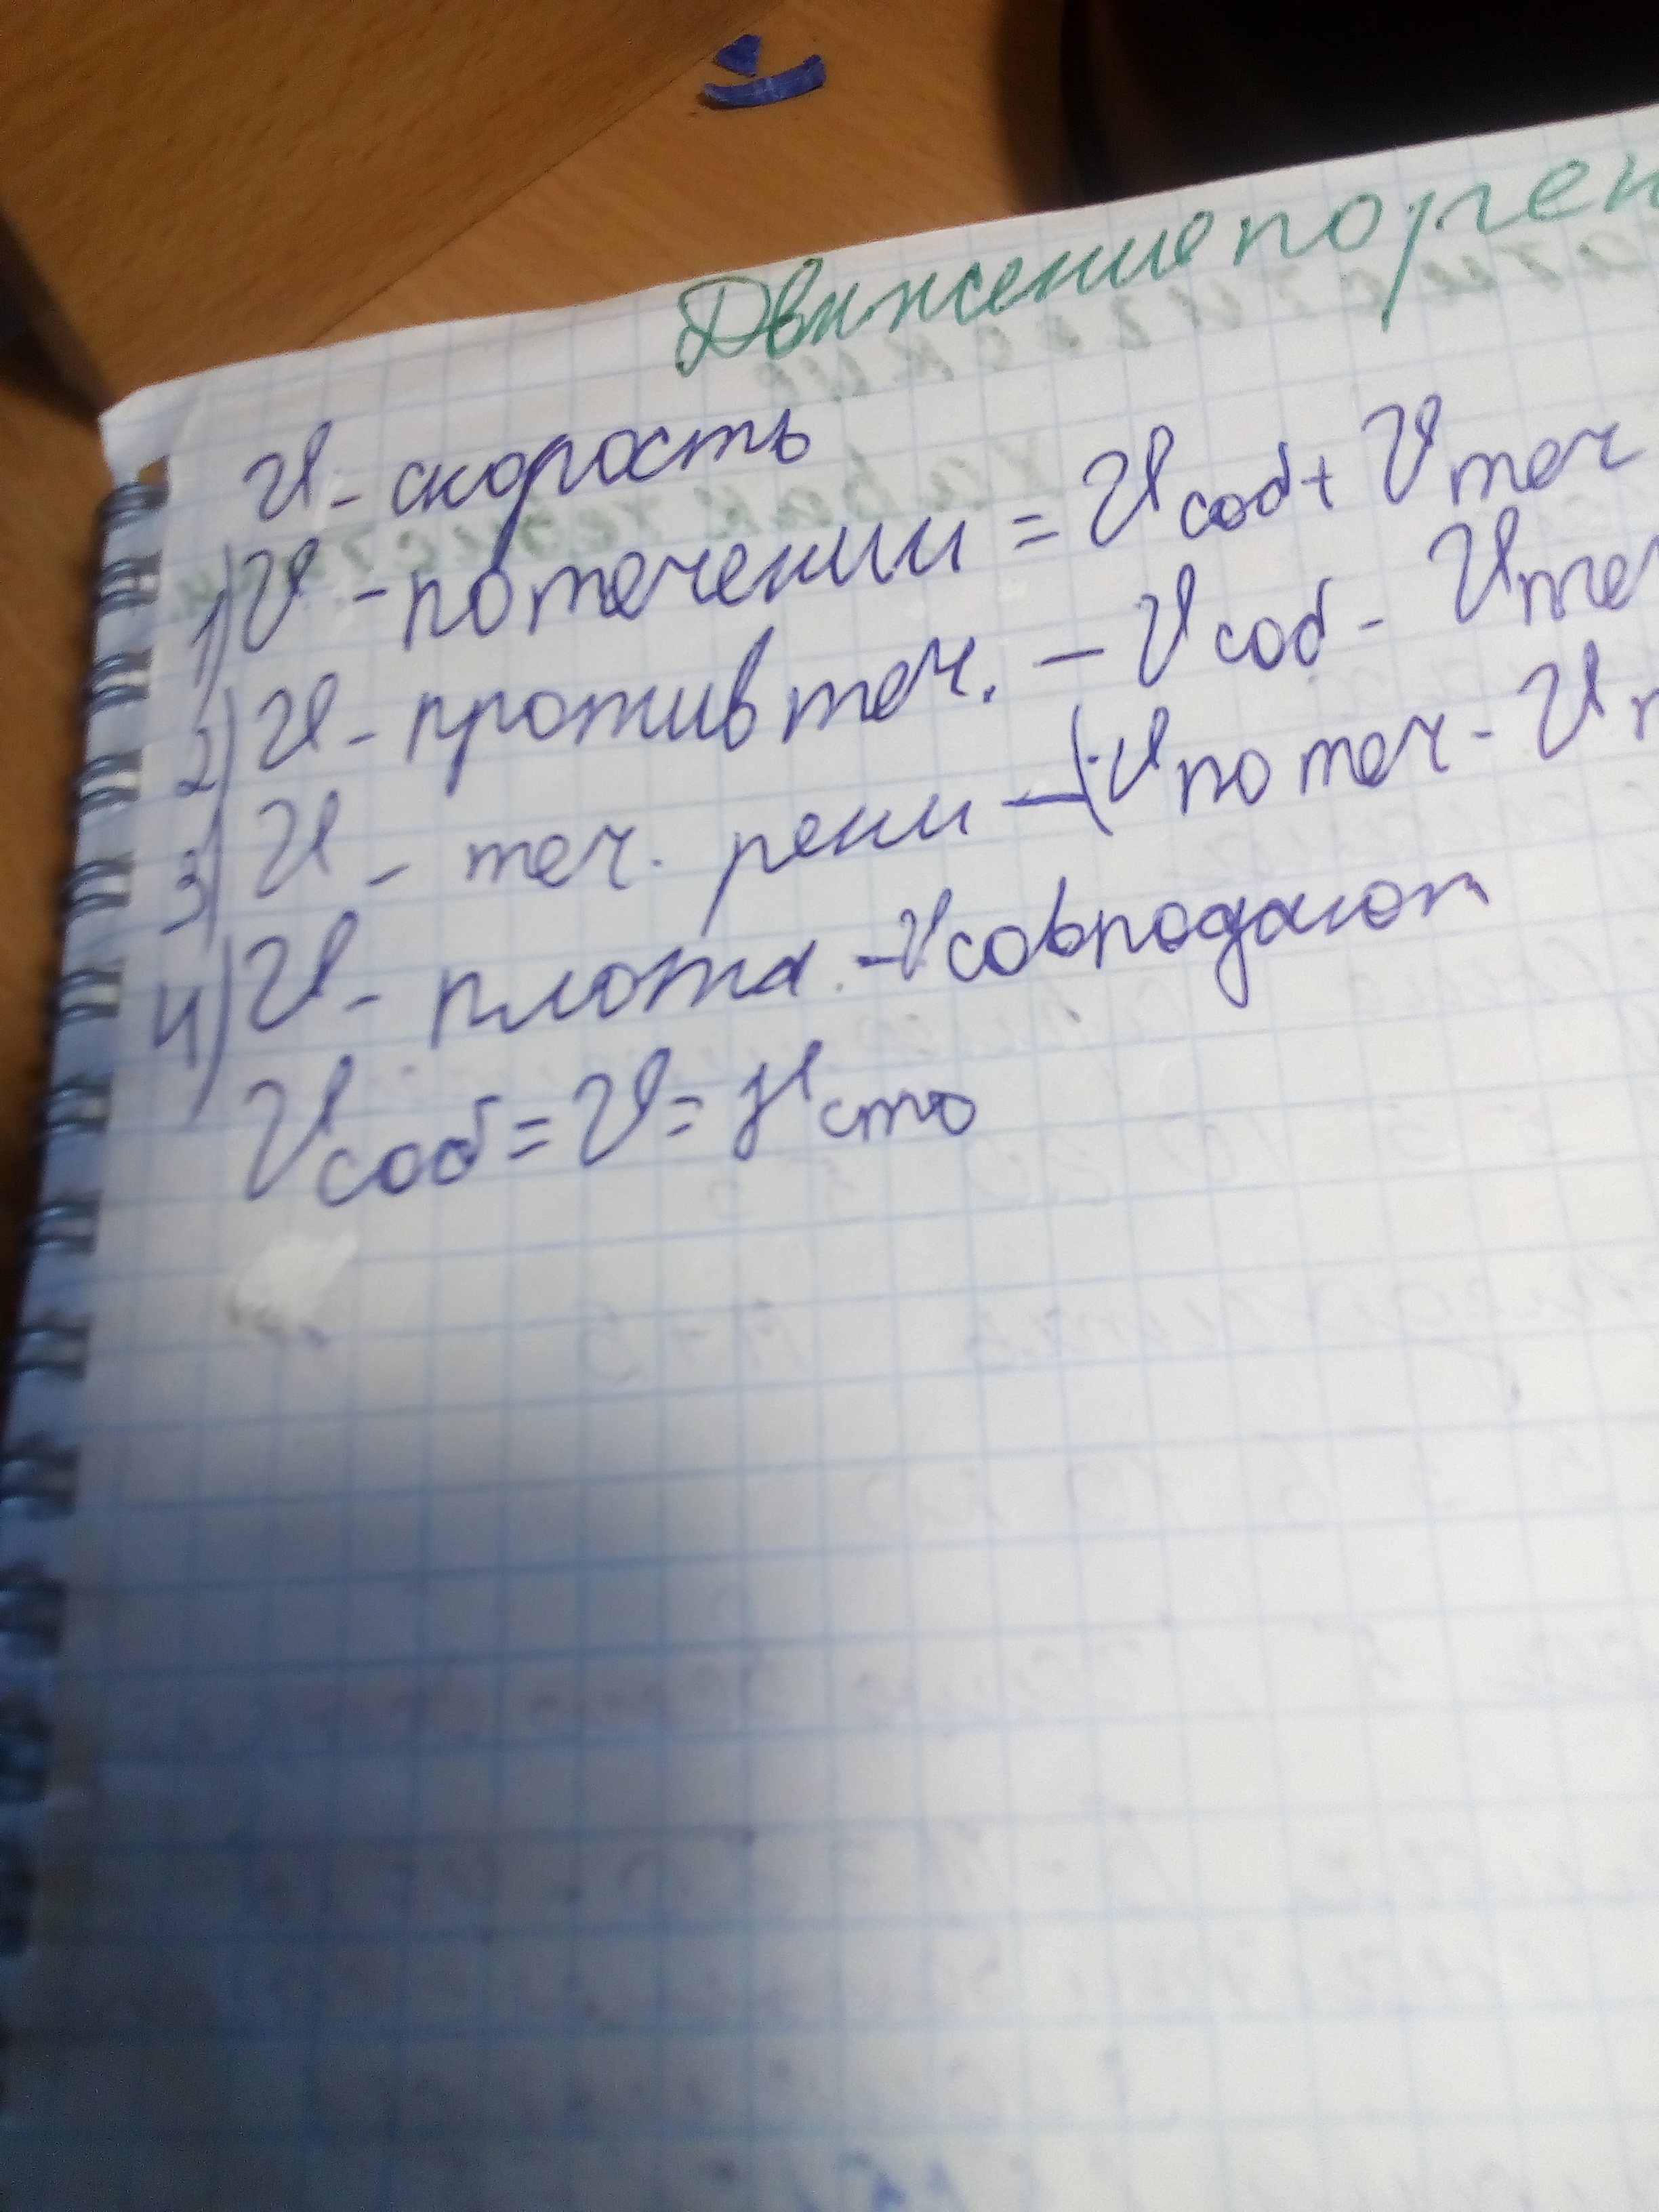 Движение по
V - скорость
1) V - по течении = Vсоб + Vтеч
2) V - против теч. - Vсоб - Vтеч
3) V - теч. реки - (Vпо теч - V
4) V - плота. - V совподают
Vсоб = V =